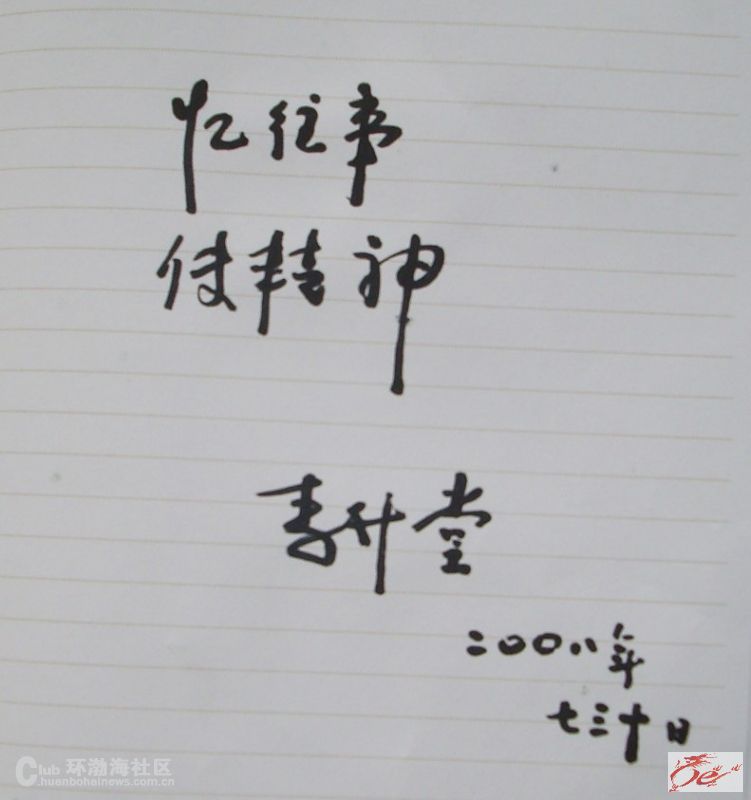 忆往事
传精神
李升堂
二〇〇八年
七三十日
Club 环渤海社区
.huanbohainews.com.cn